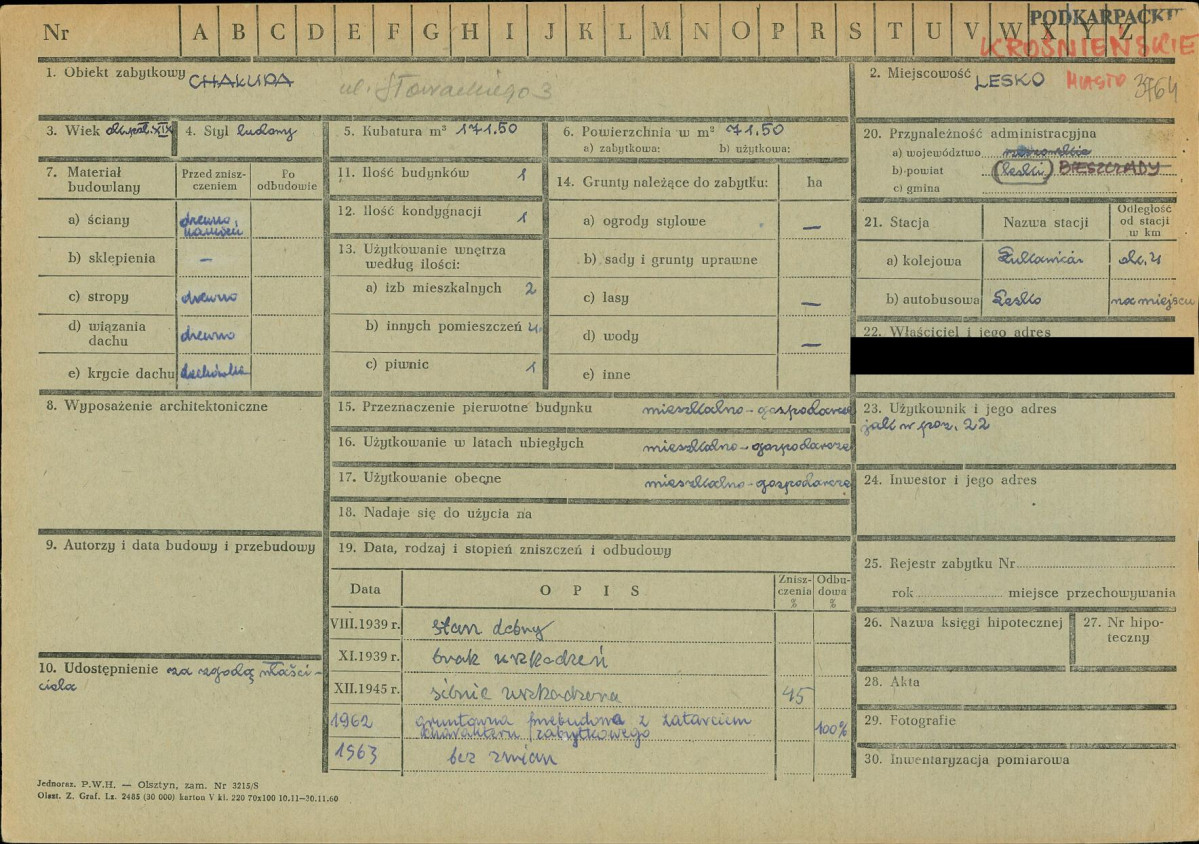 Nr A B C D E F G H I J K L M N O P R S T U V W X Y Z
PODKARPACKIE
KROŚNIEŃSKIE
1. Obiekt zabytkowy CHAŁUPA ul. Słowackiego 3
2. Miejscowość LESKO MIASTO 3764
3. Wiek XIX
4. Styl ludowy
5. Kubatura m³ 171.50
6. Powierzchnia w m² 71.50
a) zabytkowa: b) użytkowa:
7. Materiał budowlany
Przed zniszczeniem
Po odbudowie
a) ściany drewno kamień
b) sklepienia —
c) stropy drewno
d) wiązania dachu drewno
e) krycie dachu dachówka
8. Wyposażenie architektoniczne
9. Autorzy i data budowy i przebudowy
10. Udostępnienie za zgodą właści-
ciela
11. Ilość budynków 1
12. Ilość kondygnacji 1
13. Użytkowanie wnętrza
według ilości:
a) izb mieszkalnych 2
b) innych pomieszczeń 4
c) piwnic 1
14. Grunty należące do zabytku: ha
a) ogrody stylowe —
b) sady i grunty uprawne
c) lasy —
d) wody —
e) inne
15. Przeznaczenie pierwotne budynku mieszkalno-gospodarcze
16. Użytkowanie w latach ubiegłych mieszkalno-gospodarcze
17. Użytkowanie obecne mieszkalno-gospodarcze
18. Nadaje się do użycia na
19. Data, rodzaj i stopień zniszczeń i odbudowy
Data OPIS Zniszczenia % Odbudowa %
VIII.1939 r. stan dobry
XI.1939 r. brak uszkodzeń
XII.1945 r. silnie uszkodzona 45
1962 gruntowna przebudowa z zatarciem
charakteru zabytkowego 100%
1963 bez zmian
20. Przynależność administracyjna
a) województwo rzeszowskie
b) powiat (leski) BIESZCZADY
c) gmina
21. Stacja Nazwa stacji Odległość od stacji w km
a) kolejowa ok. 4
b) autobusowa Lesko na miejscu
22. Właściciel i jego adres
23. Użytkownik i jego adres
jak w poz. 22
24. Inwestor i jego adres
25. Rejestr zabytku Nr
rok miejsce przechowywania
26. Nazwa księgi hipotecznej
27. Nr hipo-
teczny
28. Akta
29. Fotografie
30. Inwentaryzacja pomiarowa
Jednoraz. P.W.H. — Olsztyn, zam. Nr 3215/S
Olszt. Z. Graf. Lz. 2485 (30 000) karton V kl. 220 70x100 10.11—30.11.60